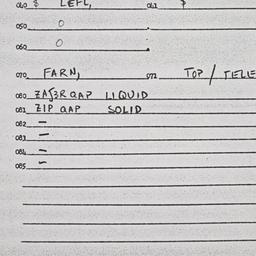 040 $ LEFL,
050 0
060 0
070 FARN, 072 TOP / TELE
080 QAP LIQUID
081 ZIP QAP SOLID
082 —
083 —
084 —
085